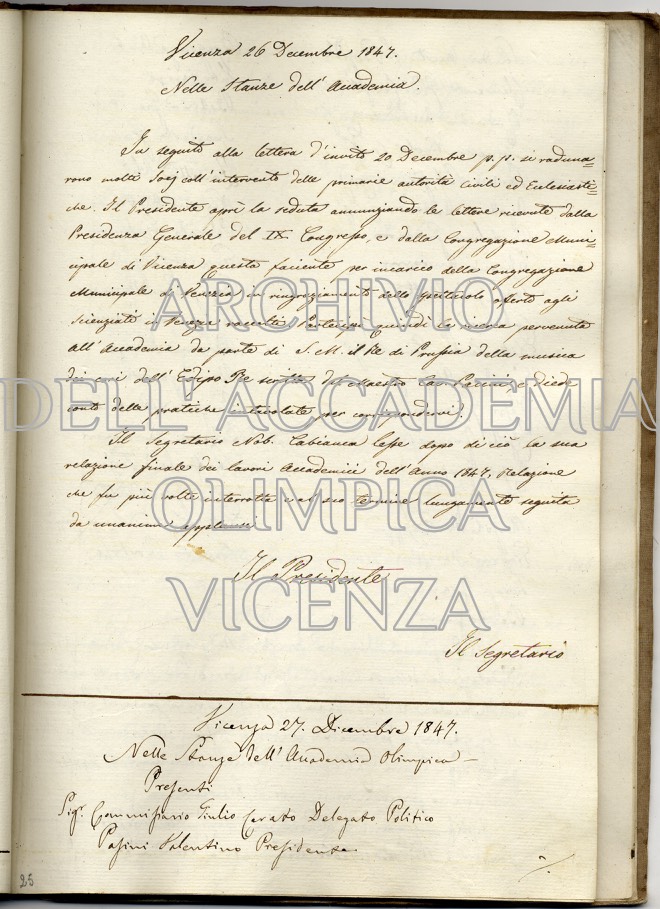 Vicenza 26 Decembre 1847.
Nelle Stanze dell' Accademia.
In seguito alla lettera d'invito 20 Decembre p. p. si raduna=
rono molti Socj coll'intervento delle primarie autorità Civili ed Eclesiasti=
che. Il Presidente aprì la seduta annunziando le lettere ricevute dalla
Presidenza Generale del IX. Congresso, e dalla Congregazione Muni=
cipale di Vicenza questa faciente per incarico della Congregazione
Municipale di Venezia in ringraziamento dello spettacolo offerto agli
Scienziati in Venezia raccolti. Partecipò quindi la ricerca pervenuta
all'Accademia da parte di S. M. il Re di Prussia della musica
dei cori dell'Edipo Re scritta dal Maestro Cav. Pacini, e diede
conto delle pratiche intavolate per corrispondervi.
Il Segretario Nob. Cabianca lesse dopo di ciò la sua
relazione finale dei lavori Accademici dell'Anno 1847. Relazione
che fu più volte interrotta e al suo termine lungamente seguita
da unanimi applausi.
Il Presidente
Il Segretario
Vicenza 27. Dicembre 1847.
Nelle Stanze dell'Accademia Olimpica —
Presenti
Sigr. Commissario Giulio Cerato Delegato Politico
Pasini Valentino Presidente
25
ARCHIVIO
DELL'ACCADEMIA
OLIMPICA
VICENZA